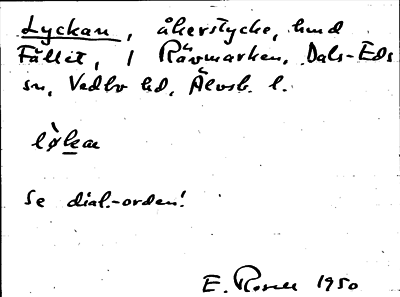 Lyckan, åkerstycke, hmd
Fället, 1 Rävmarken, Dals-Eds
sn, Vedbo hd, Älvsb. l.
lø̀kan
Se dial.-orden!
E. 1950